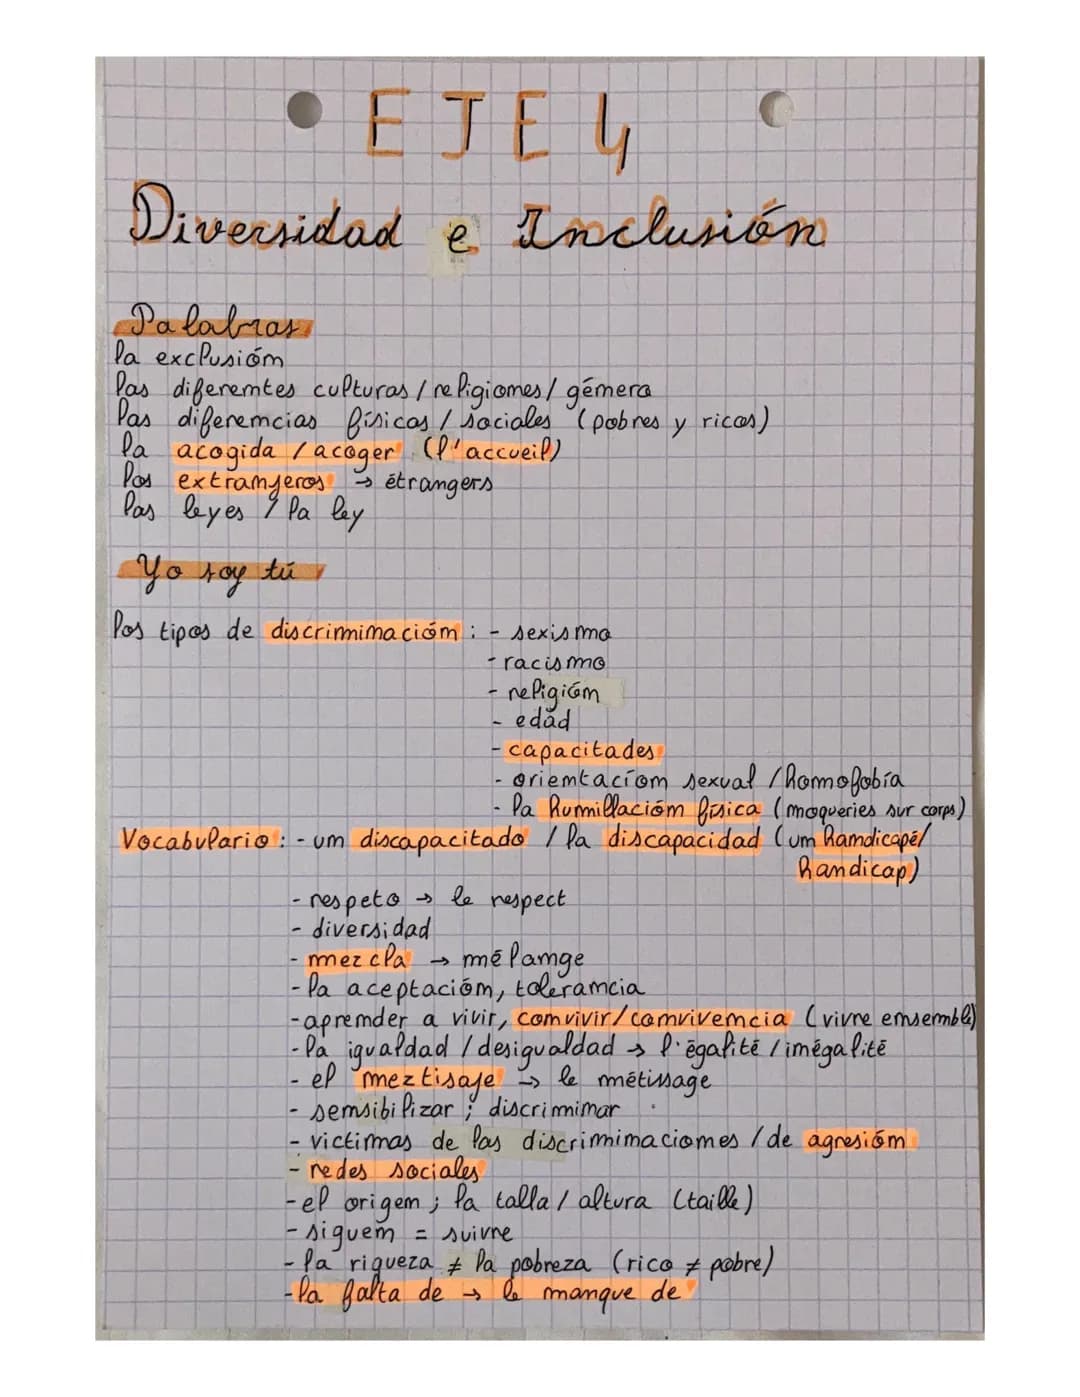 EJE 4
Diversidad e Inclusión
Palabras
la exclusión
las diferentes culturas / religiones / género
las diferencias físicas / sociales (pobres y ricos)
la acogida / acoger (l'accueil)
los extranjeros → étrangers
las leyes / la ley
Yo soy tú
los tipos de discriminación : - sexismo
- racismo
- religión
- edad
- capacitades
- orientacíon sexual / homofobía
- la humillación física (moqueries sur corps)
Vocabulario : - un discapacitado / la discapacidad (un handicapé/
handicap)
- respeto → le respect
- diversidad
- mezcla → mélange
- la aceptación, tolerancia
- aprender a vivir, convivir/convivencia (vivre ensemble)
- la igualdad / desigualdad → l'égalité / inégalité
- el meztisaje → le métissage
- sensibilizar ; discriminar
- victimas de las discriminaciones / de agresión
- redes sociales
- el origen ; la talla / altura (taille)
- siguen = suivre
- la riqueza ≠ la pobreza (rico ≠ pobre)
- la falta de → le manque de